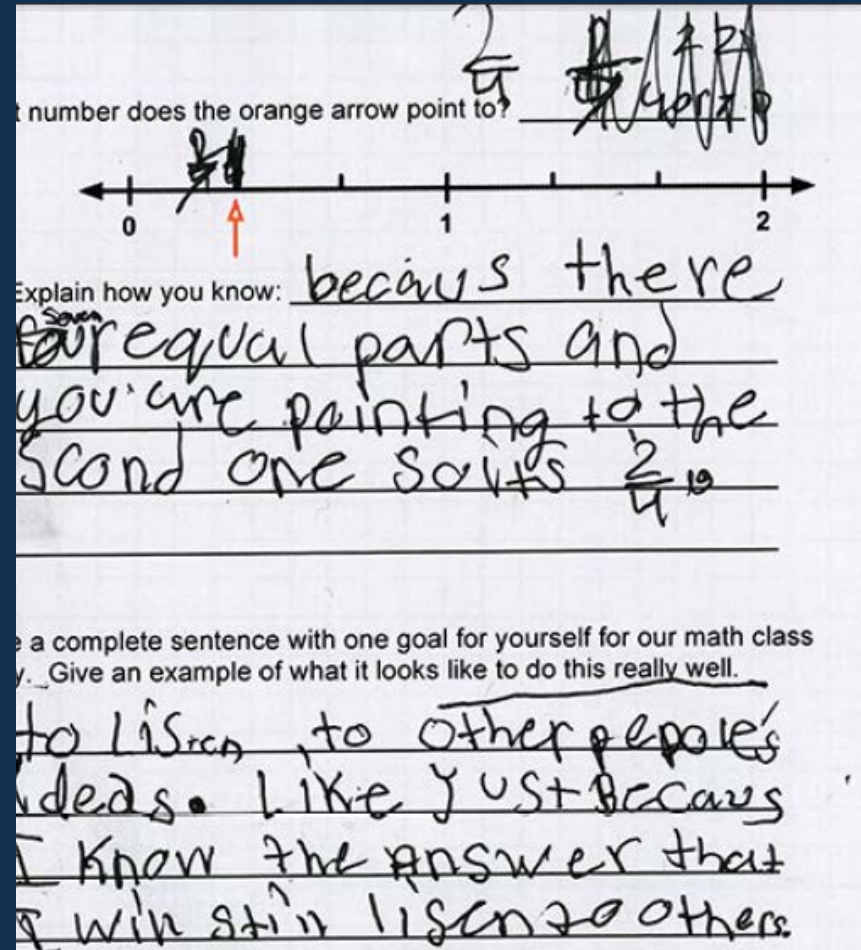 2/4
t number does the orange arrow point to?
0 1 2
Explain how you know: becaus there
seven equal parts and
you are pointing to the
Scond one so its 2/4
e a complete sentence with one goal for yourself for our math class
y. Give an example of what it looks like to do this really well.
to listen to other pepole's
ideas. Like Just Becaus
I know the Answer that
I will still lisen to others.